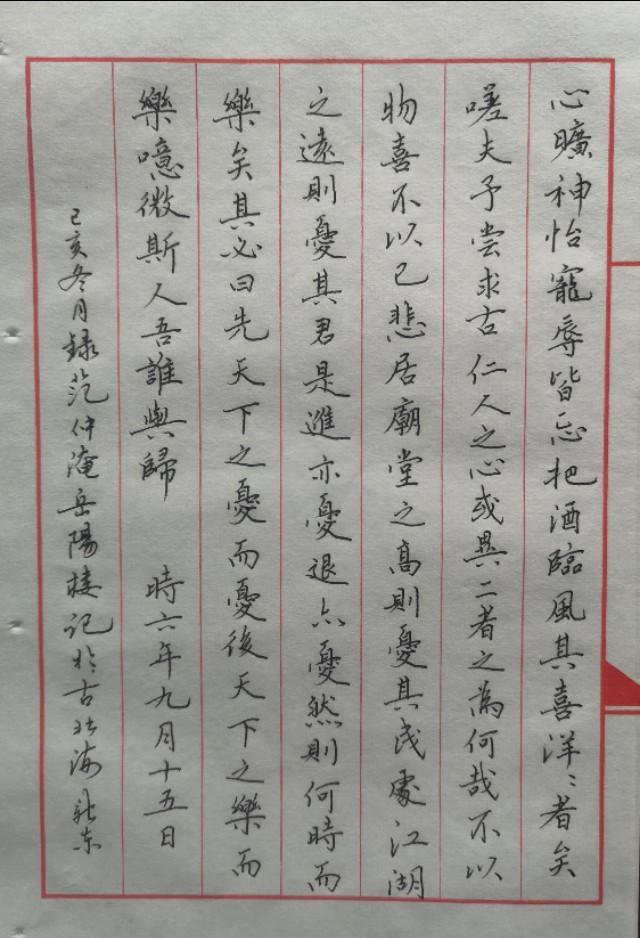 心曠神怡寵辱皆忘把酒臨風其喜洋〻者矣
嗟夫予嘗求古仁人之心或異二者之為何哉不以
物喜不以己悲居廟堂之高則憂其民處江湖
之遠則憂其君是進亦憂退亦憂然則何時而
樂矣其必曰先天下之憂而憂後天下之樂而
樂噫微斯人吾誰與歸 時六年九月十五日
己亥冬月録范仲淹岳陽樓記於古北海